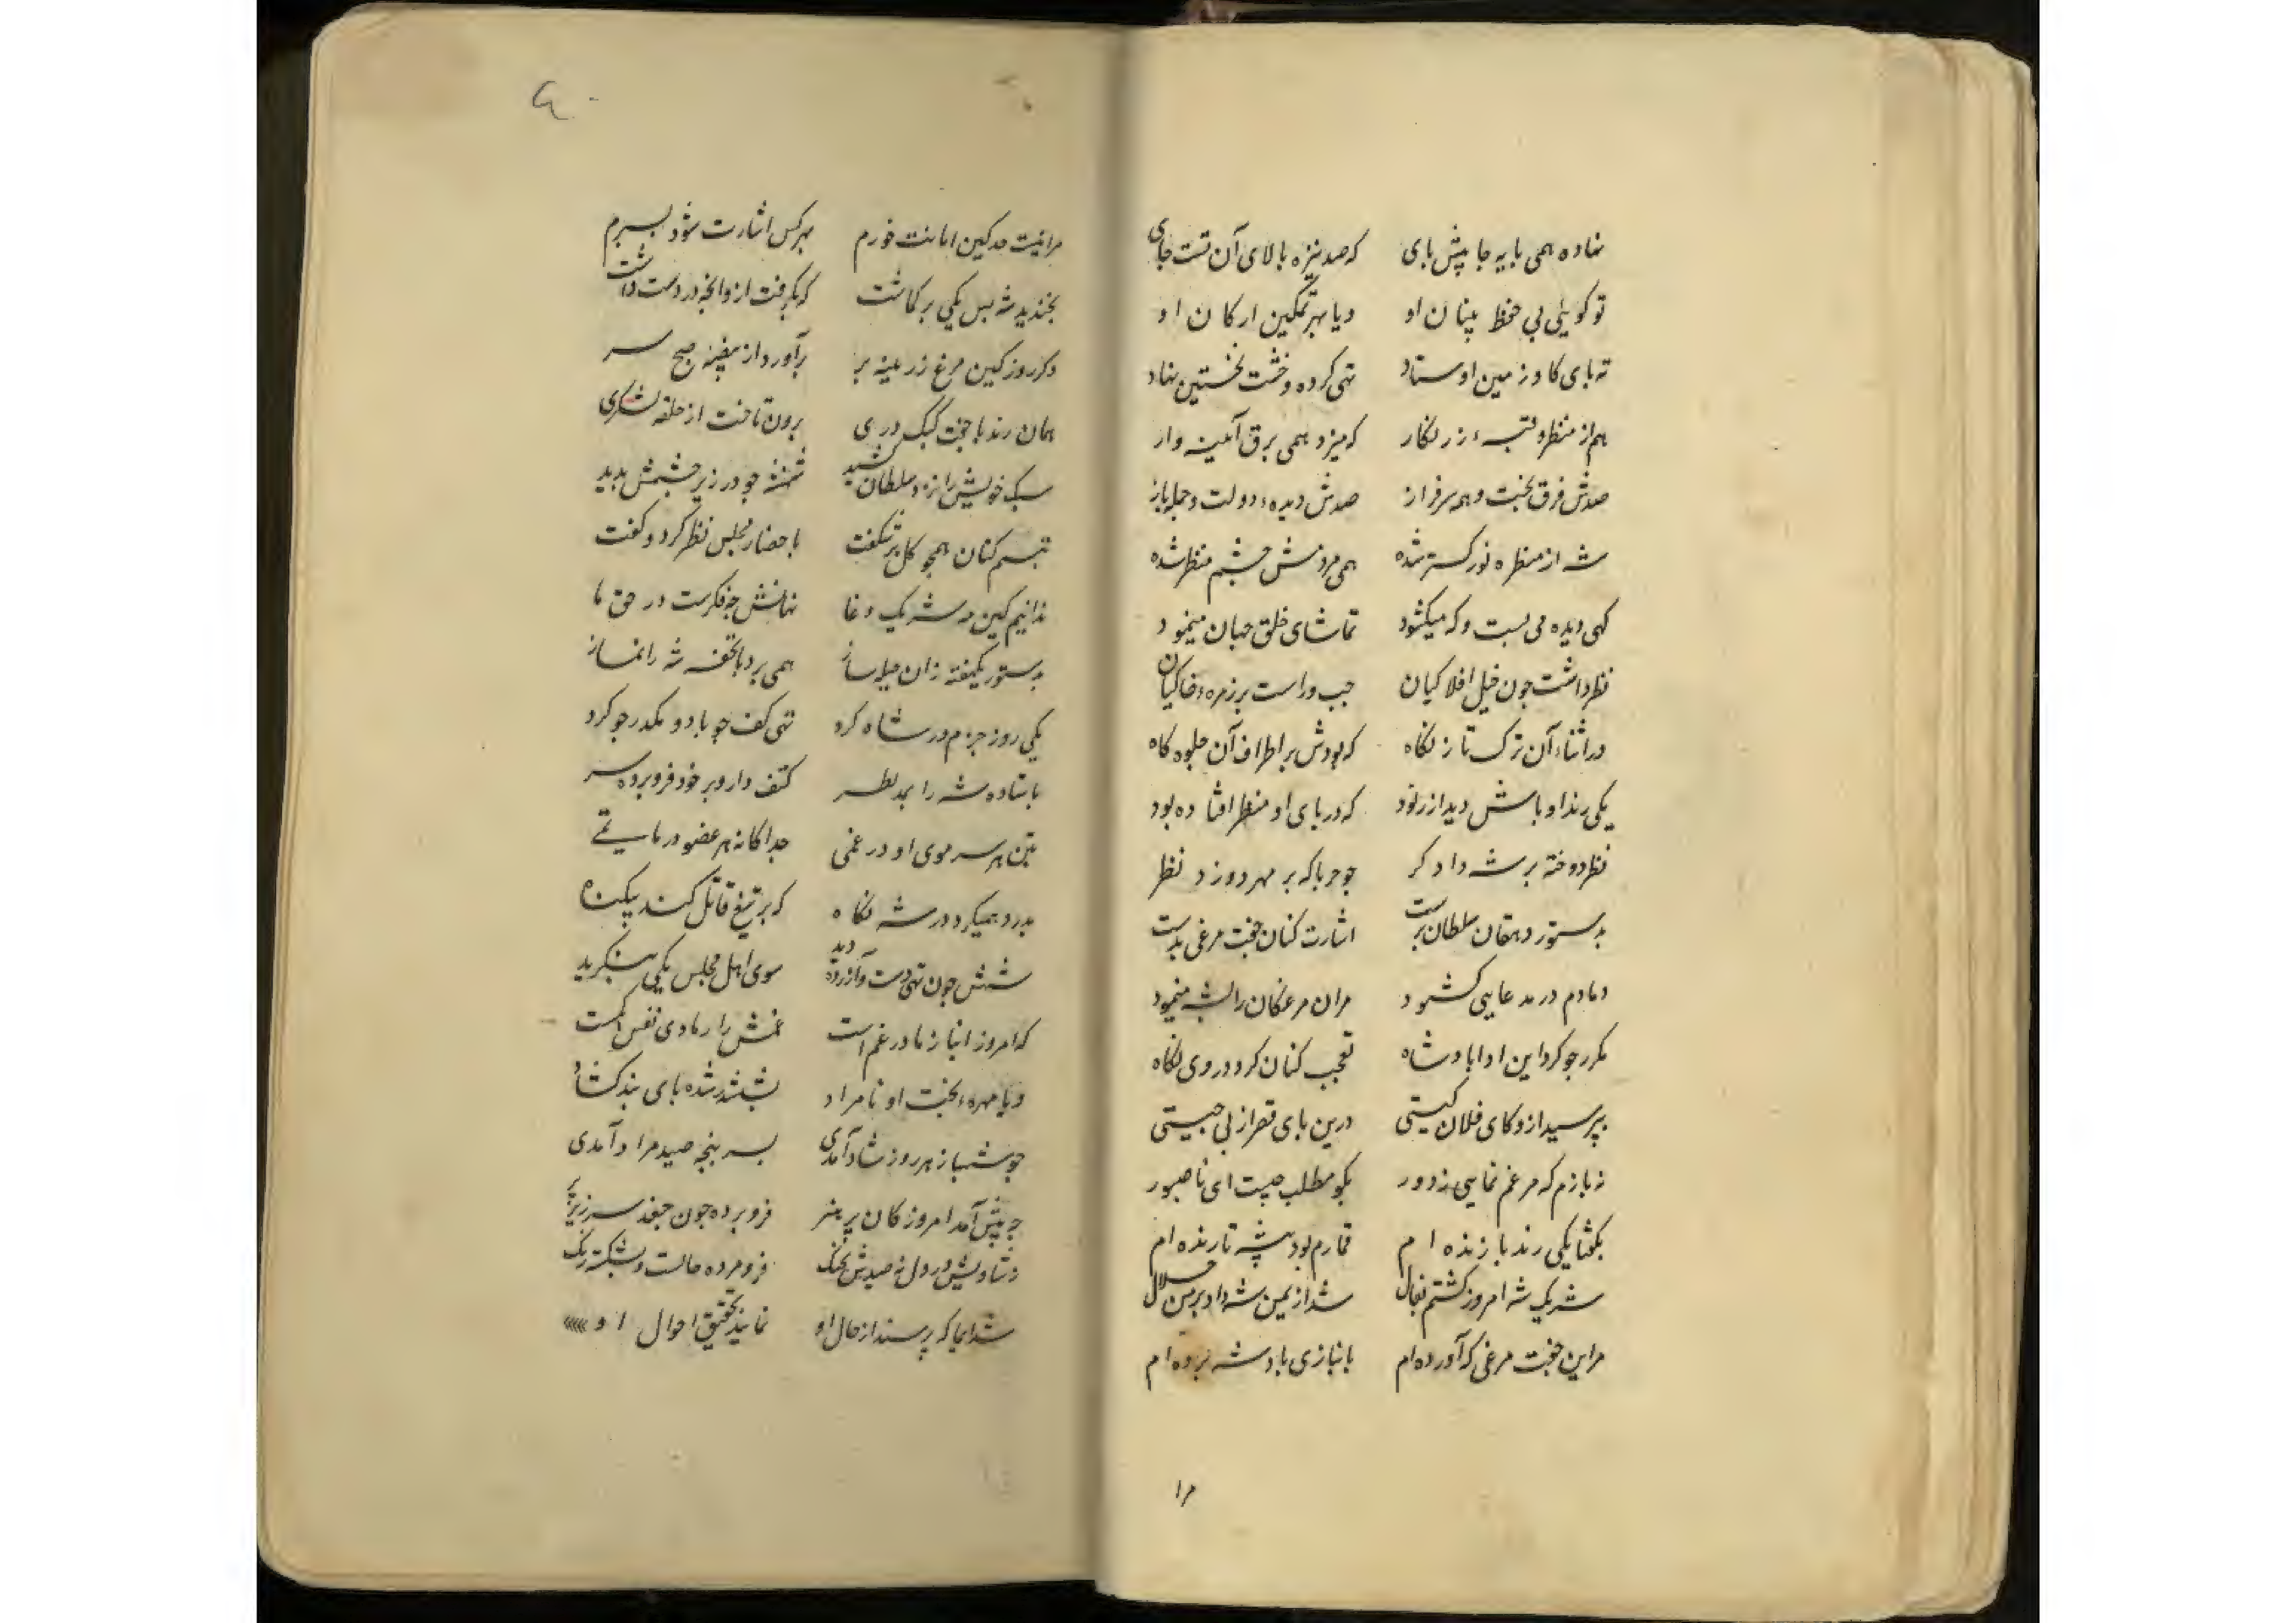 نهاده همی بایه جا پیش بای که صد نیزه بالای آن تست جای
تو کوئی بی حفظ بنیان او و یا بهر تمکین ارکان او
ته بای کاو زمین اوستاد تهی کرده و خشت نخستین نهاد
هم از منظر و قبهء زرنکار که میزد همی برق آئینه وار
صدش فرق بخت و همه سرفراز صدش دیدهء دولت و جمله باز
شه از منظره نور کستر شده همی مردمش جشم منظر شده
کهی دیده می بست و که میکشود تماشای خلق جهان مینمود
نظر داشت جون خیل افلاکیان جب و راست بر زمرهء خاکیان
در اثناء آن ترک تاز نکاه که بودش بر اطراف آن جلوه کاه
یکی رند اوباش دید از زود که در بای او منظر افتاده بود
نظر دوخته بر شه دادکر جو حربا که بر مهر دوزد نظر
بدستور دهقان سلطان برست اشارت کنان جفت مرغی بدست
دمادم در مدعایی کشود مران مرغکان را بشه مینمود
مکرر جو کرد این ادا بادشاه تعجب کنان کرد در وی نکاه
بپرسید ازو کای فلان کیستی درین بای قصر از بی جیستی
نه بازم که مرغم نمایی ز دور بکو مطلب چیست ای ناصبور
بکفتا یکی رند بازنده ام قمارم بود پیشه تا زنده ام
شریک شه امروز کشتم بفال شد از یمن شه داد بر من حلال
مر این جفت مرغی که آورده ام بانبازی بادشه برده ام
مرا
مرا نیست حد کین امانت خورم بهر کس اشارت شود بسبرم
بخندید شه بس یکی بر کماشت که بکرفت ازو آنچه در دست داشت
دکر روز کین مرغ زرینه بر برآورد از بیضهٔ صبح سر
همان رند با جفت کبک دری برون تاخت از حلقه لشکری
سبک خویش را نزد سلطان کشید شهنشه جو در زیر جشمش بدید
تبسم کنان همجو کل برشکفت باحضار مجلس نظر کرد و کفت
ندانیم کین مه شریک دغا نهانش جه فکرست در حق ما
بدستور یکهفته زان حیله ساز همی برد با تحفه شه را نماز
یکی روز جزم در شاه کرد تهی کف جو باد و مکدر جو کرد
باستاده شه را بمد نظر کتف داروبر خود فرو برده سر
بتن هر سر موی او در غمی جداکانه هر عضو در ماتمی
بدرد همیکرد در شه نکاه که بر تیغ قاتل کند بیکناه
شهش جون تهی دست و آزرده دید سوی اهل مجلس یکی بنکرید
که امروز انباز ما در غم است غمش را رمادی نفس است
و یا مهرهء بخت او نامراد بششدر شده بای بند کشاد
جو شهباز هر روز شاد آمدی بسر پنجه صید مراد آمدی
جه پیش آمد امروز کان پر هنر فرو برده جون جغد سر زیر پر
نه شادیش در دل نه صیدش بجنک فرو مرده حالت و بشکسته رنک
شد ایما که پرسند از حال او نمایند تحقیق احوال او
۶۰